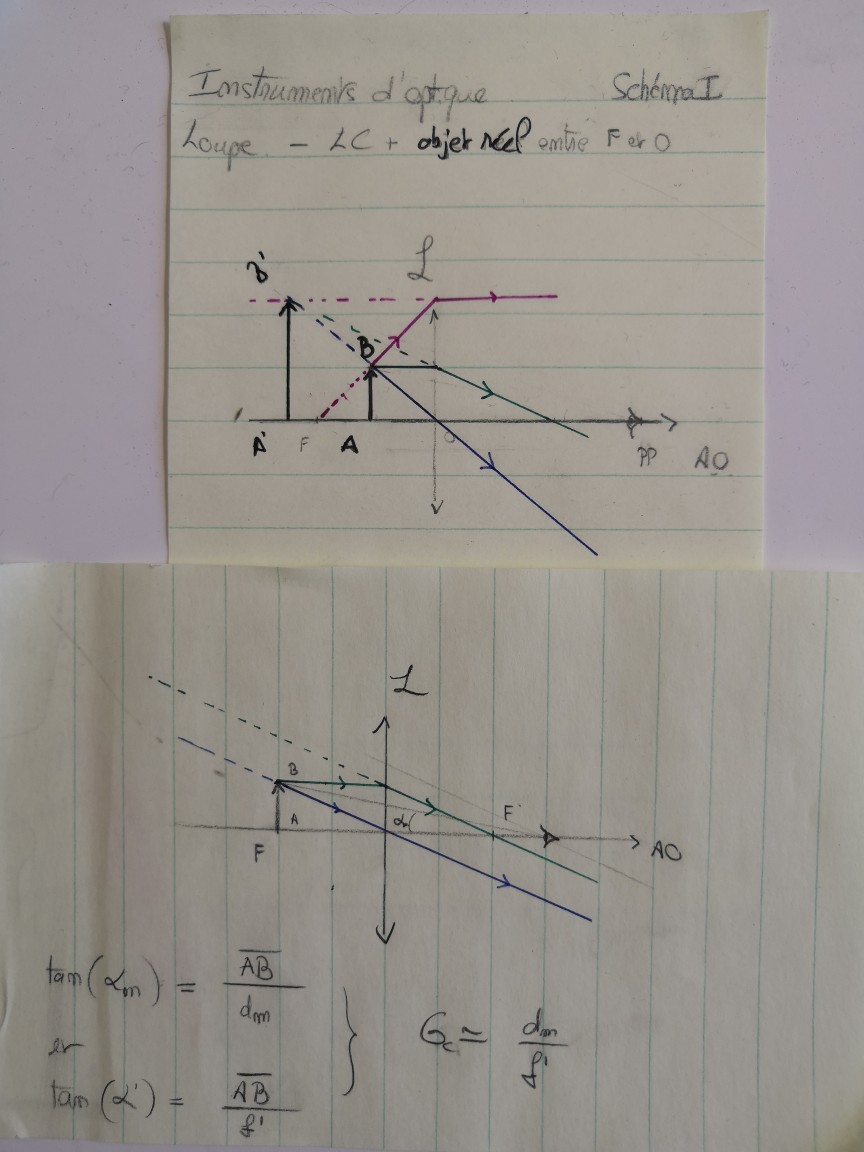 Instruments d'optique Schéma I
Loupe - LC + objet réel entre F et O
B' L
B
A' F A O PP AO
L
B
A αm F' AO
F
tan(αm) = AB̅ / dm
et
tan(α') = AB̅ / f'
Gc ≃ dm / f'